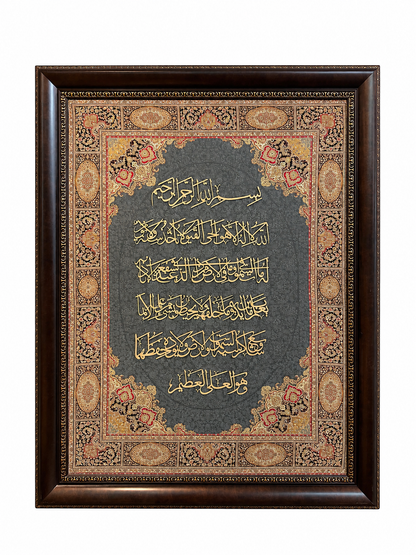 بسم الله الرحمن الرحيم
الله لا إله إلا هو الحي القيوم لا تأخذه سنة ولا نوم
له ما في السموات وما في الأرض من ذا الذي يشفع عنده إلا بإذنه
يعلم ما بين أيديهم وما خلفهم ولا يحيطون بشيء من علمه إلا بما شاء
وسع كرسيه السموات والأرض ولا يؤده حفظهما
وهو العلي العظيم